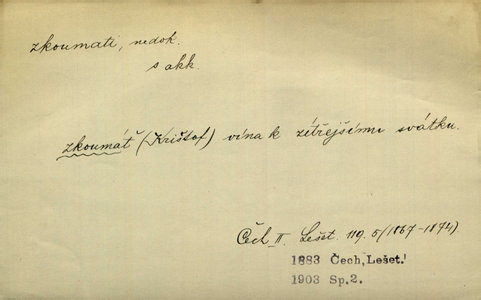 zkoumati, nedok.
s akk.
zkoumáť (Krištof) vína k zítřejšímu svátku.
Čech II. Lešet. 119. 5 (1867-1874).
1883 Čech, Lešet.
1903 Sp.2.